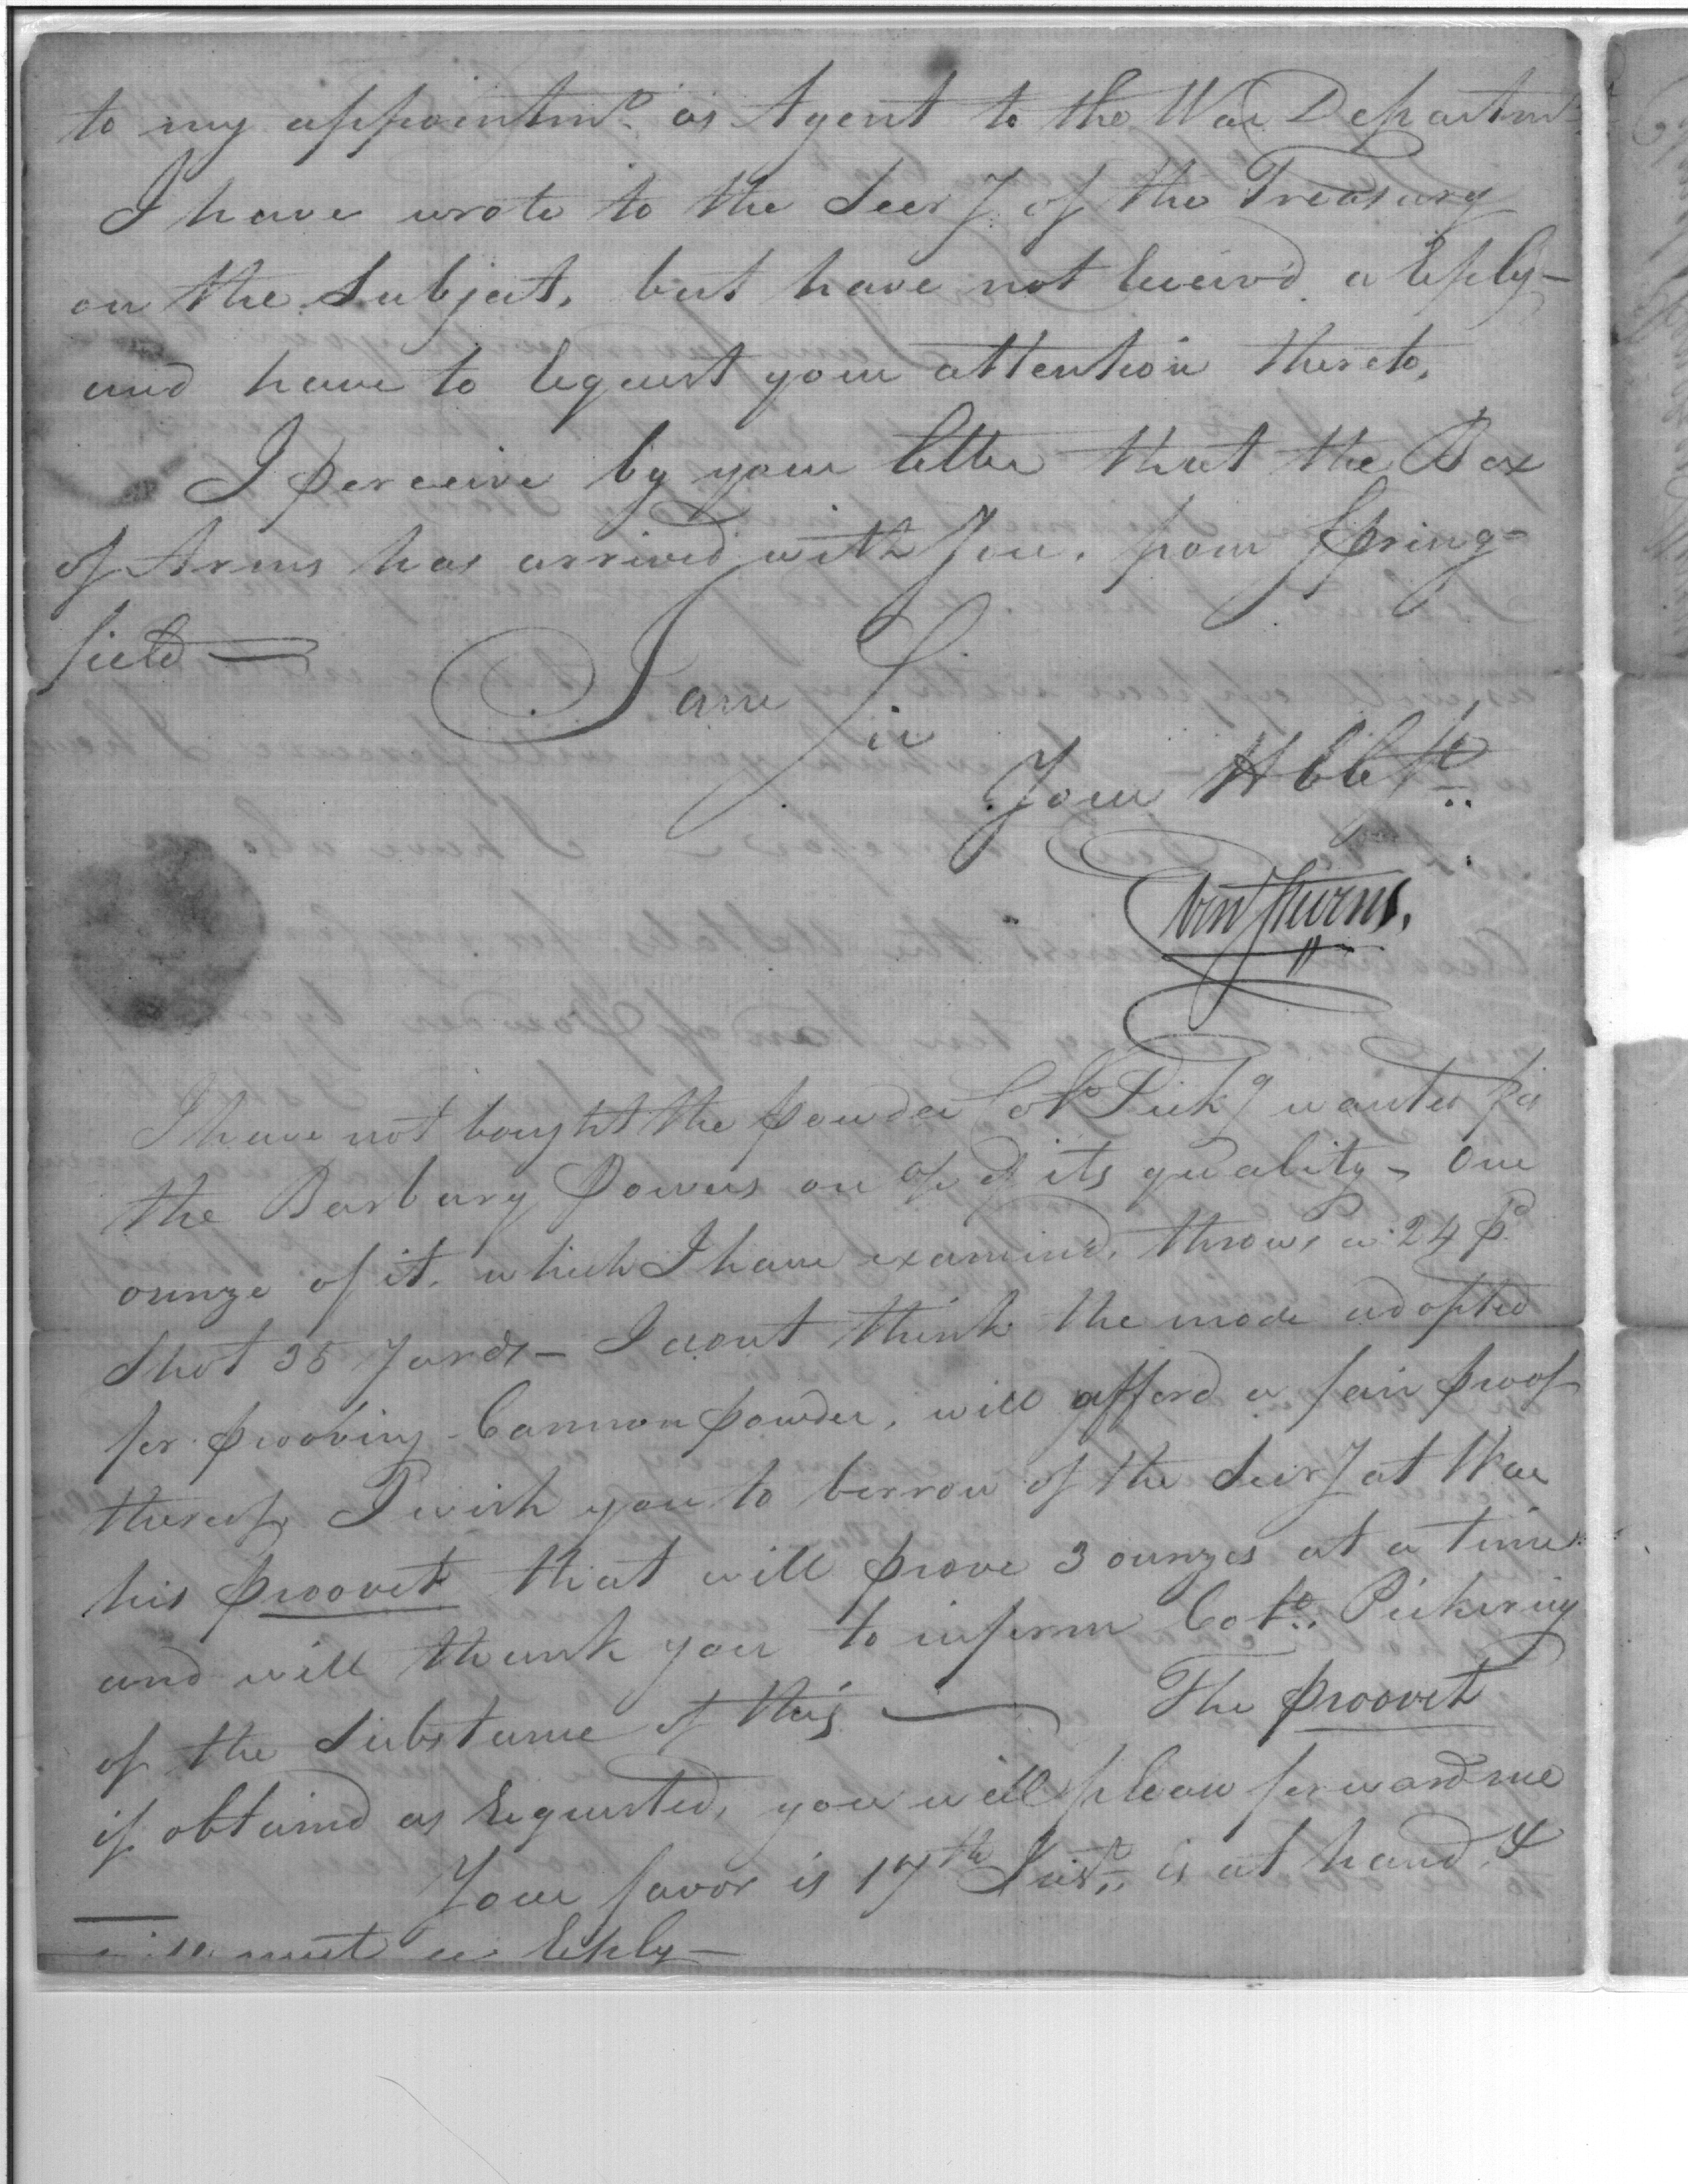 to my appointmt. as Agent to the War Departmt
I have wrote to the Secry of the Treasury
on the Subject, but have not receiv'd a reply—
and have to request your attention thereto.
I perceive by your letter that the Box
of Arms has arrived with You, from Spring=
field —
I am Sir
Your Hble St.
Eben Stevens.
I have not bought the powder Colo Pickg wanted for
the Barbary Powers on a/c of its quality— One
ounze of it, which I have examined, throws a 24 pd.
Shot 35 Yards— I dont think the mode adopted
for prooving Cannon powder, will afford a fair proof
thereof, I wish you to borrow of the Secry at War
hisproovet that will prove 3 ounzes at a time
and will thank you to inform Colo.. Pickering
of the Substance of this — The proovet
if obtained as requested, you will please forward me
Your favor is 17th Inst.. is at hand, &
must reply—